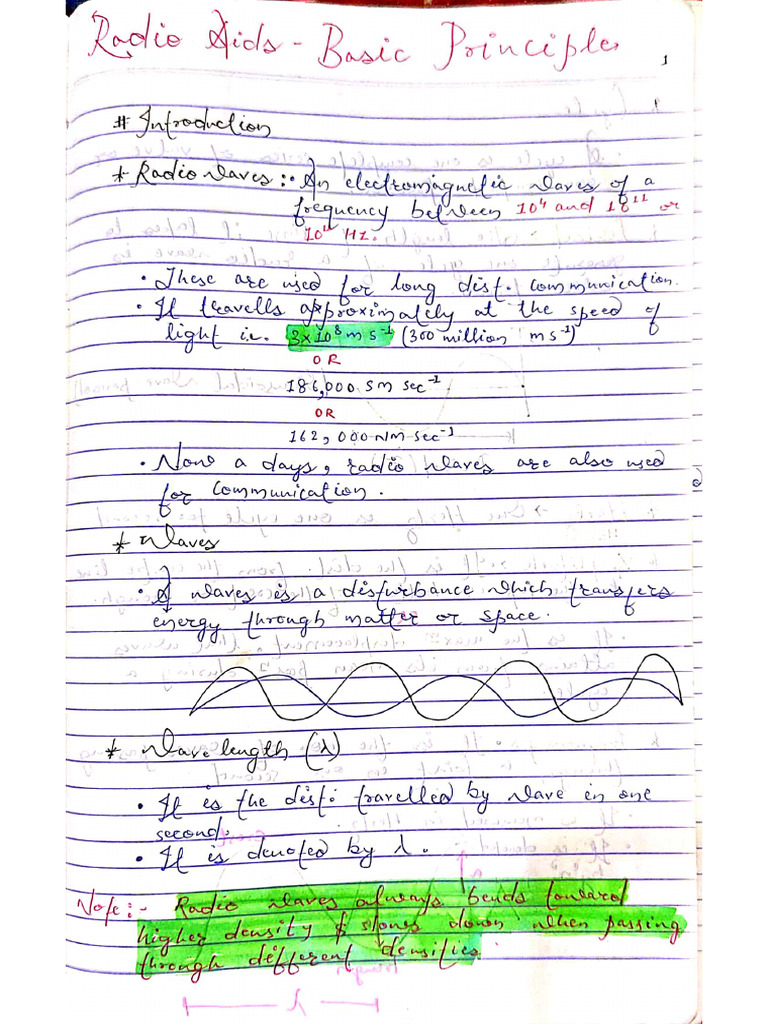 Radio Aids - Basic Principles
1
# Introduction
* Radio Waves :- An electromagnetic Waves of a
frequency between 10⁴ and 10¹¹ or
10¹¹ Hz.
• These are used for long dist. communication.
• It travells approximately at the speed of
light i.e. 3×10⁸ m s⁻¹ (300 million ms⁻¹)
OR
186,000 SM sec⁻¹
OR
162,000 NM sec⁻¹
• Now a days, radio Waves are also used
for communication.
* Waves
• A waves is a disturbance which transfers
energy through matter or space.
* Wave length (λ)
• It is the dist. travelled by Wave in one
second.
• It is denoted by λ.
Note:- Radio waves always bends toward
higher density & slows down when passing
through different densities.